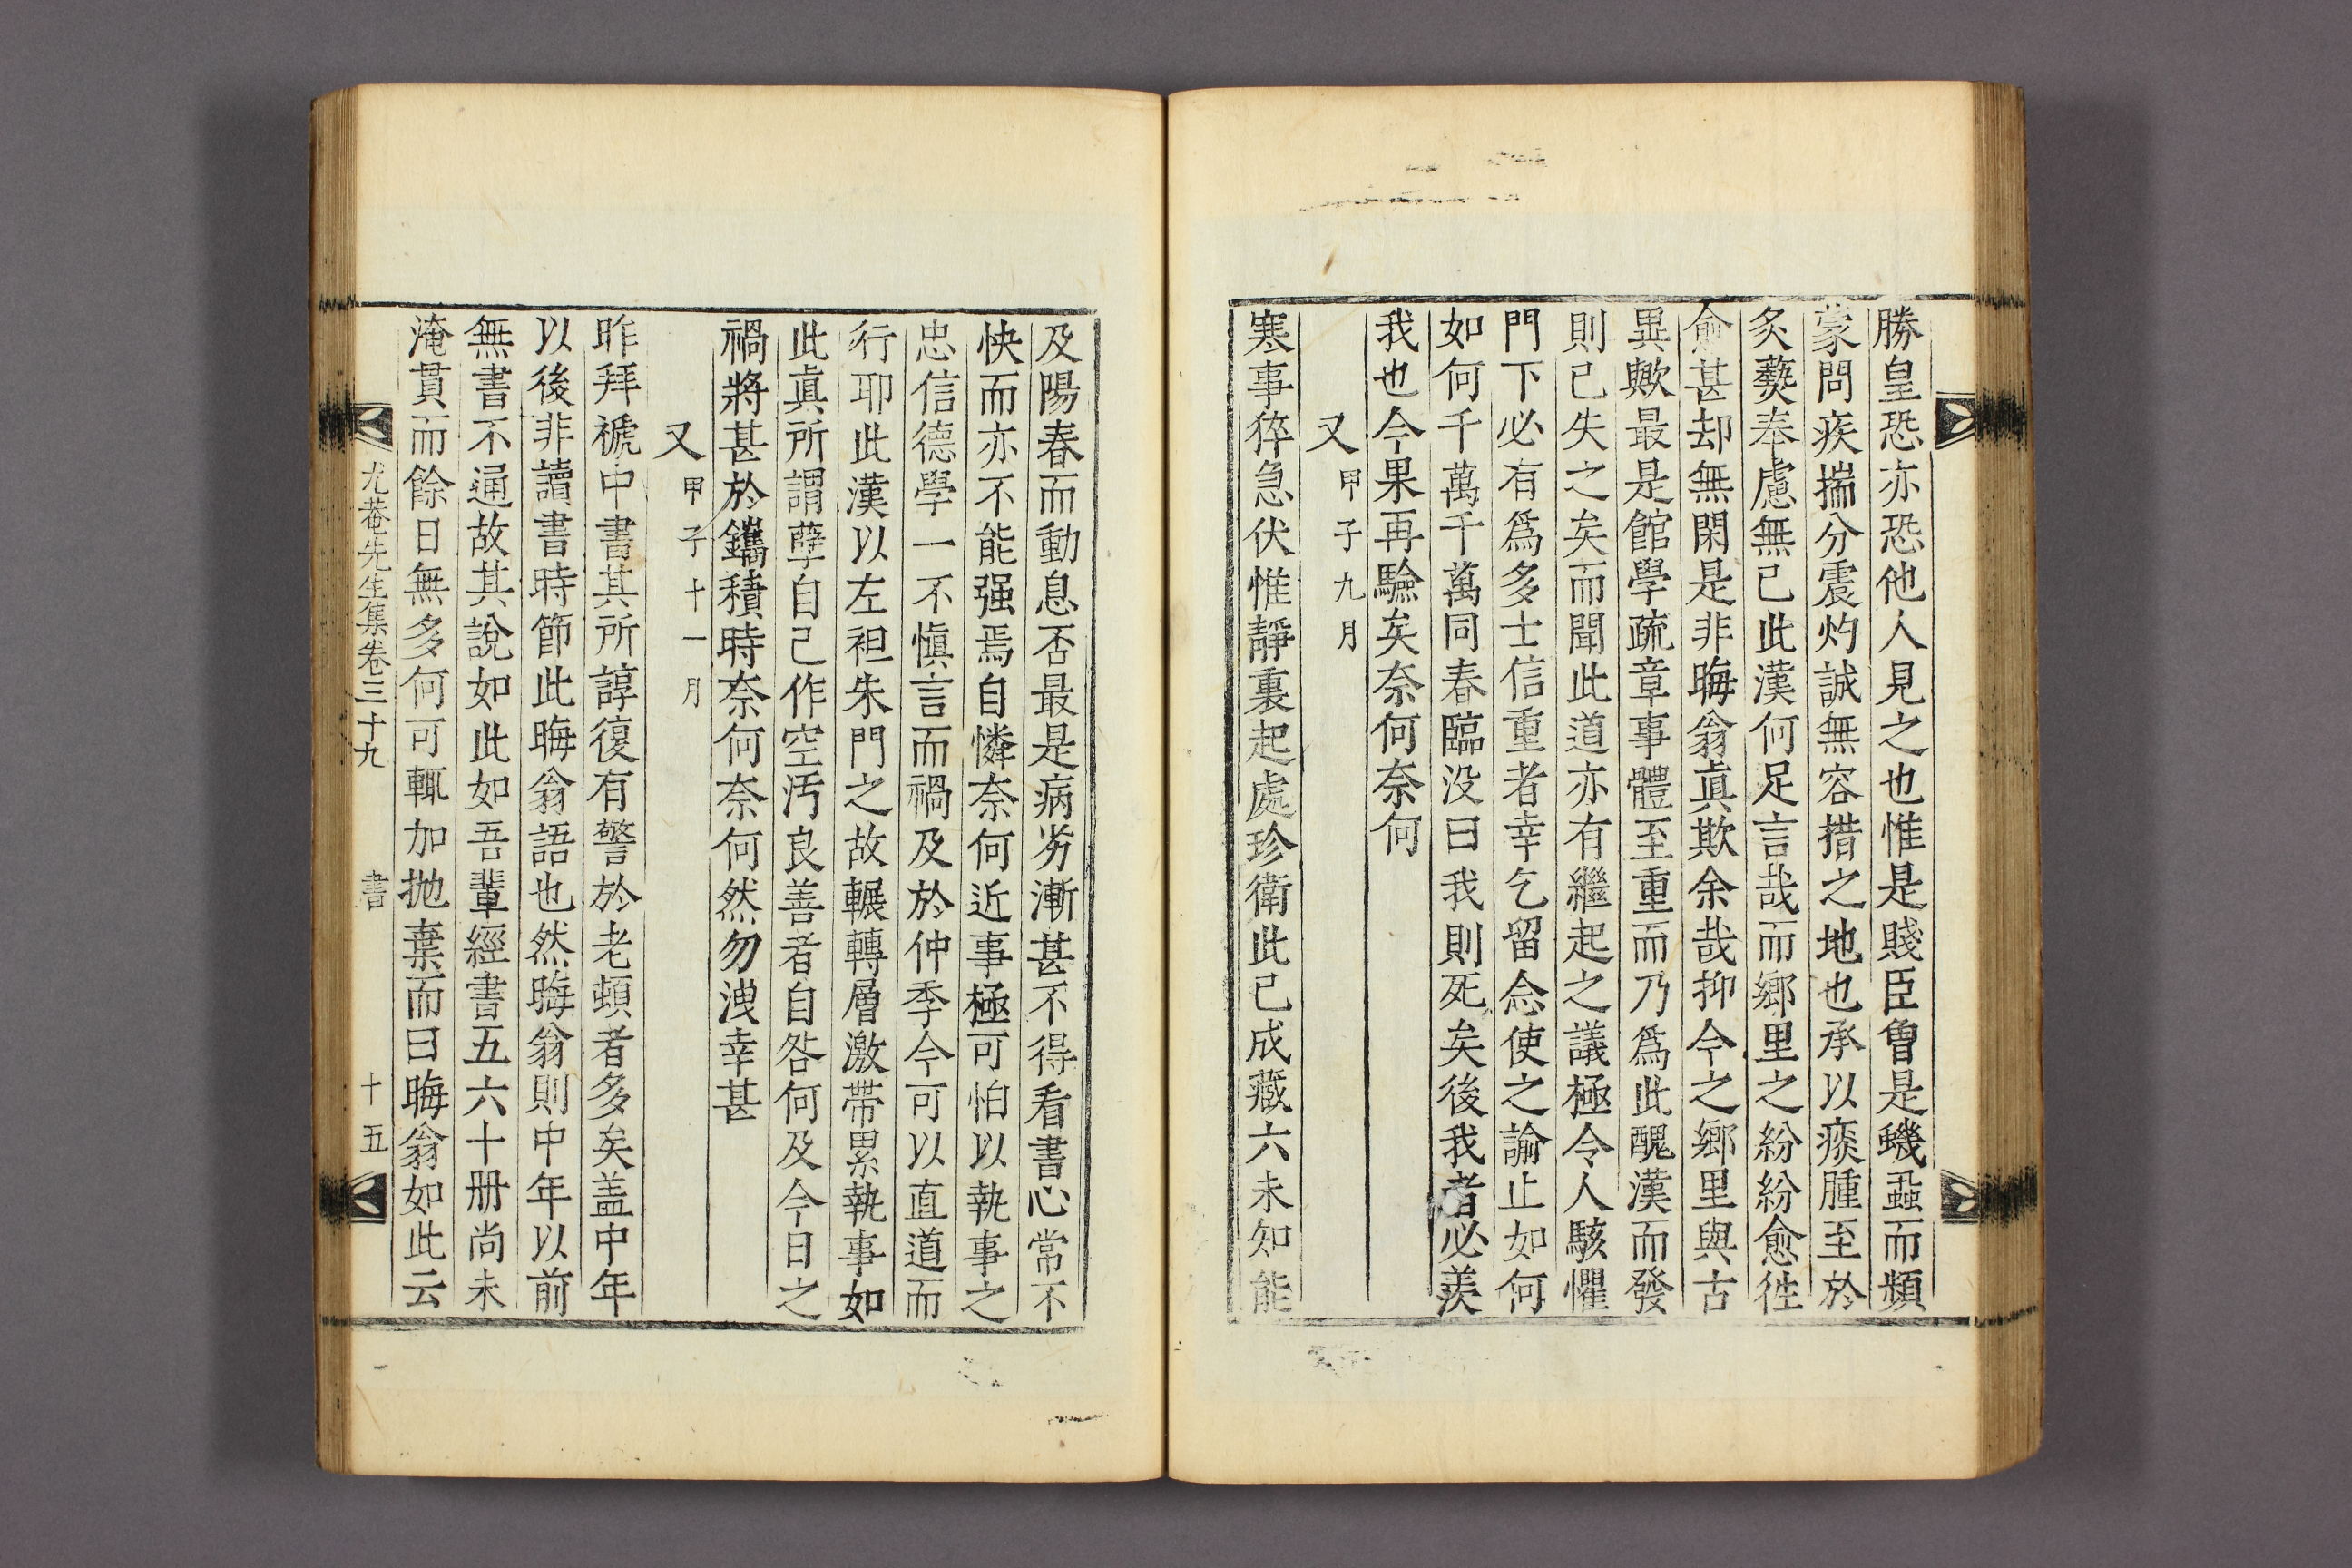 勝皇恐亦恐他人見之也惟是賤臣曾是蟣蝨而頻
蒙問疾揣分震灼誠無容措之地也承以痰腫至於
炙爇奉慮無已此漢何足言哉而鄕里之紛紛愈徃
愈甚却無閑是非晦翁眞欺余哉抑今之鄕里與古
異歟最是館學疏章事體至重而乃爲此醜漢而發
則已失之矣而聞此道亦有繼起之議極令人駭懼
門下必有爲多士信重者幸乞留念使之諭止如何
如何千萬千萬同春臨沒曰我則死矣後我者必羨
我也今果再驗矣奈何奈何
又甲子九月
寒事猝急伏惟靜裏起處珍衛此已成藏六未知能
及陽春而動息否最是病劣漸甚不得看書心常不
快而亦不能强焉自憐奈何近事極可怕以執事之
忠信德學一不愼言而禍及於仲季今可以直道而
行耶此漢以左袒朱門之故輾轉層激帶累執事如
此眞所謂孽自己作空汚良善者自咎何及今日之
禍將甚於鑴積時奈何奈何然勿洩幸甚
又甲子十一月
昨拜褫中書其所諄復有警於老頓者多矣盖中年
以後非讀書時節此晦翁語也然晦翁則中年以前
無書不通故其說如此如吾輩經書五六十册尙未
淹貫而餘日無多何可輒加抛棄而曰晦翁如此云
尤菴先生集卷三十九 書 十五